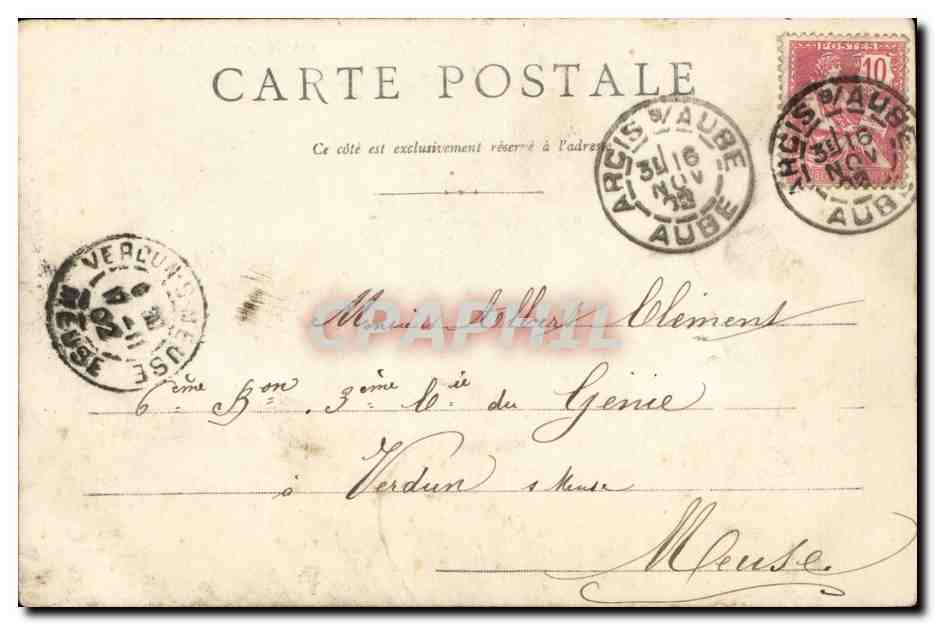 CARTE POSTALE
Ce côté est exclusivement réservé à l'adresse
POSTES
10
ARCIS S/AUBE
3E 16
NOV
02
AUBE
ARCIS S/AUBE
3E 16
NOV
02
AUBE
VERDUN S MEUSE
MEUSE
CPAPHIL
Monsieur Albert Clément
6ème Bon. 3ème Cie du Génie
à Verdun s Meuse
Meuse